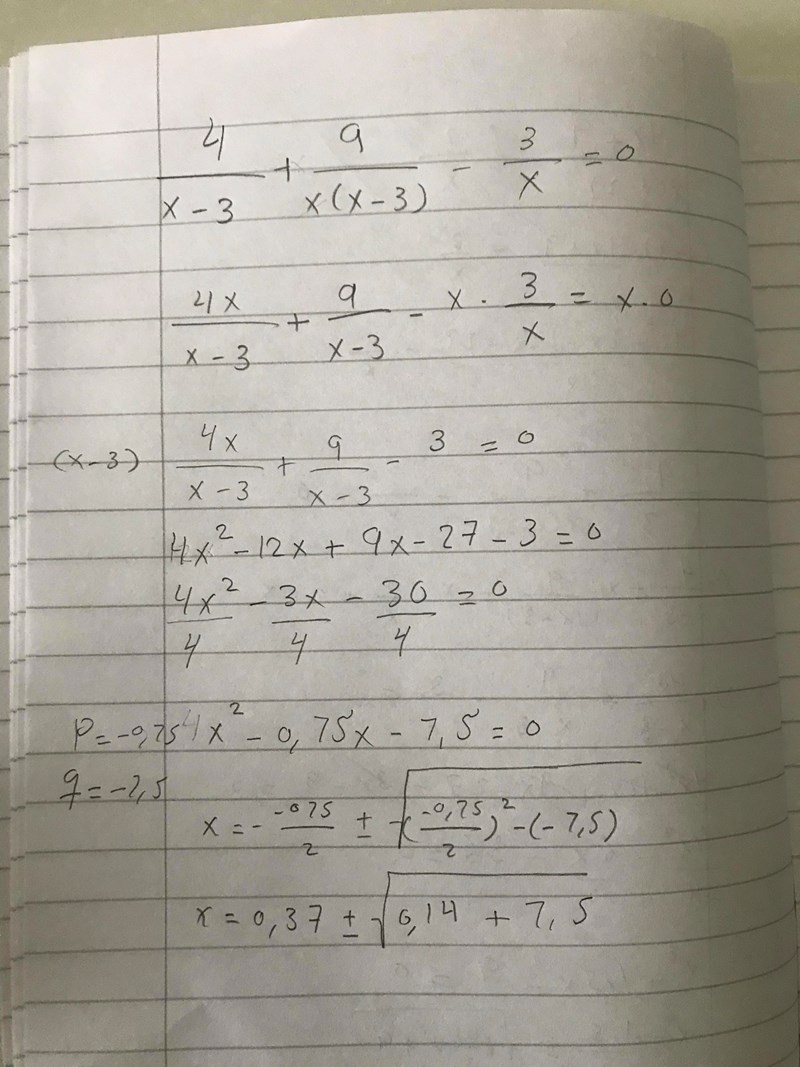 4/(x-3) + 9/(x(x-3)) - 3/x = 0
4x/(x-3) + 9/(x-3) - x · 3/x = x · 0
(x-3) 4x/(x-3) + 9/(x-3) - 3 = 0
4x² - 12x + 9x - 27 - 3 = 0
4x²/4 - 3x/4 - 30/4 = 0
p = -0,75 4x² - 0,75x - 7,5 = 0
q = -7,5
x = - -075/2 ± √(-0,75/2)² - (-7,5)
x = 0,37 ± √0,14 + 7,5